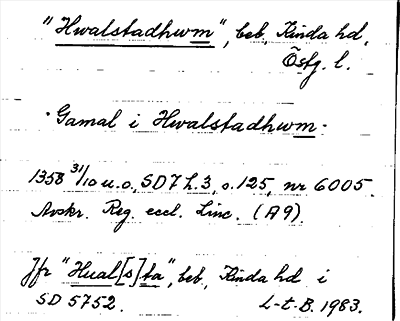 "Hwalstadhwm", beb, Kinda hd,
Östg. l.
"Gamal i Hwalstadhwm"
1358 31/10 u.o., SD7 h.3, s.125, nr 6005.
Avskr. Reg. eccl. Linc. (A9).
Jfr "Hual[s]ta", beb, Kinda hd i
SD 5752. L-t-B. 1983.